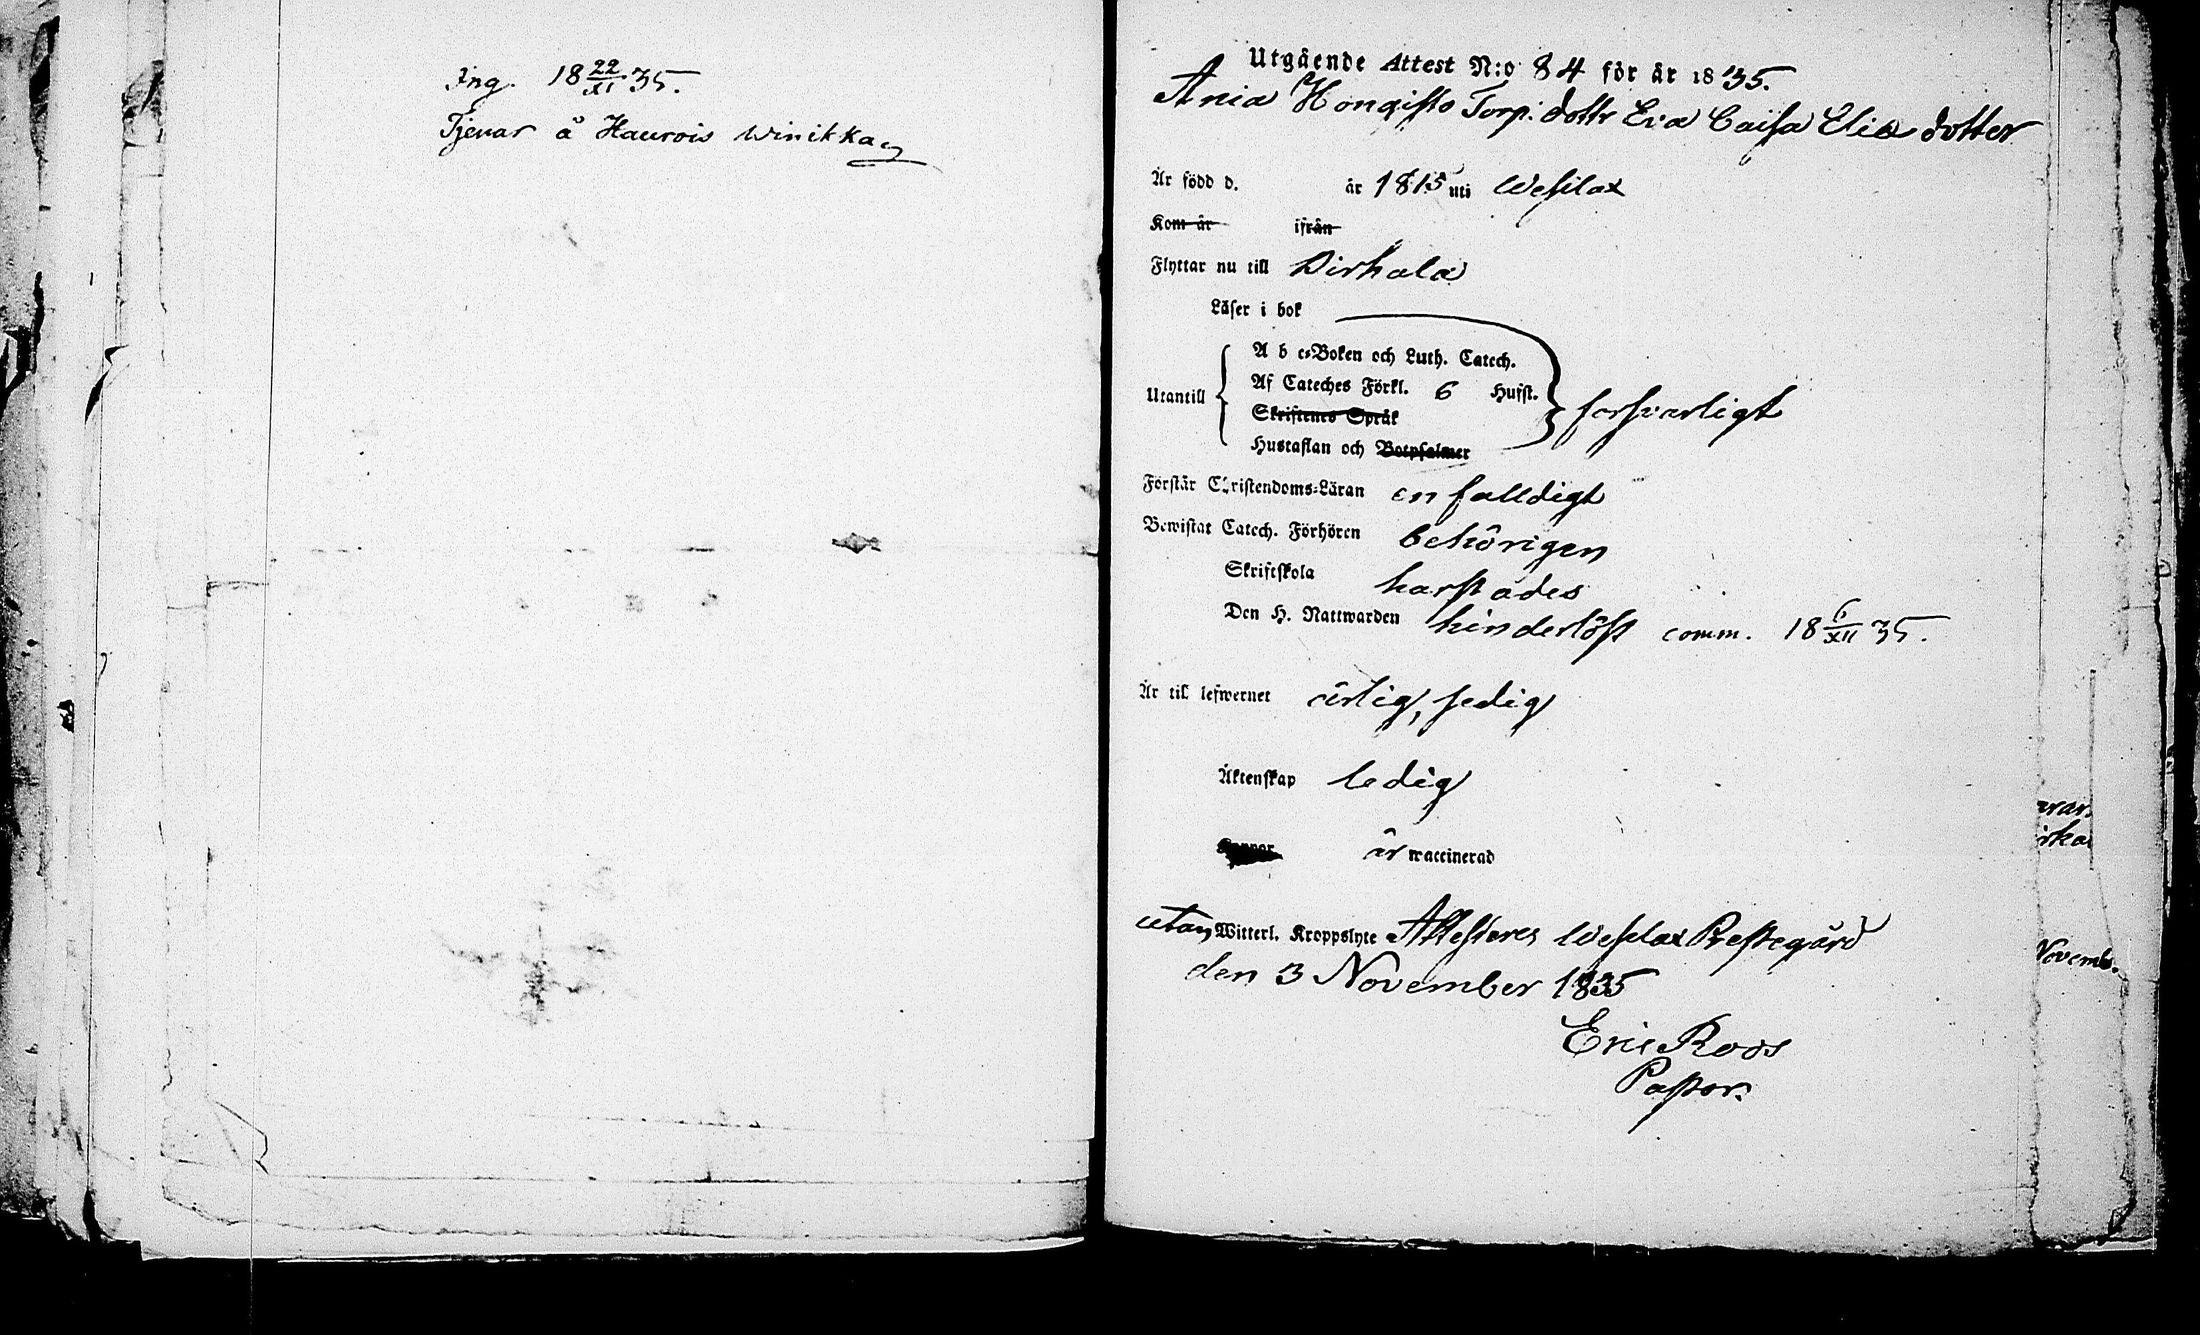 Ing. 18 22/XI 35.
Tjenar å Haurois Winikka
Utgående Attest N:o 84 för år 1835.
Ania Hongisto Torp. dottr Eva Caisa Elias dotter
Är född d. år 1815 uti Wesilax
Kom år ifrån
Flyttar nu till Pirkala
Läser i bok
A b c-Boken och Luth. Catech.
Utantill Af Cateches Förkl. 6 Hufst. försvarligt
Skriftenes Språk
Hustaflan och Botpsalmer
Förstår Christendoms-Läran enfalldigt
Bewistat Catech. Förhören behörigen
Skriftskola härstädes
Den H. Nattwarden hinderlöst comm. 18 6/XII 35.
Är till lefwernet ärlig, sedig
Äktenskap ledig
är waccinerad
utan Witterl. Kroppslyte Attesteres Wesilax Prestegård
den 3 November 1835
Eric Roos
Pastor.
Novemb.